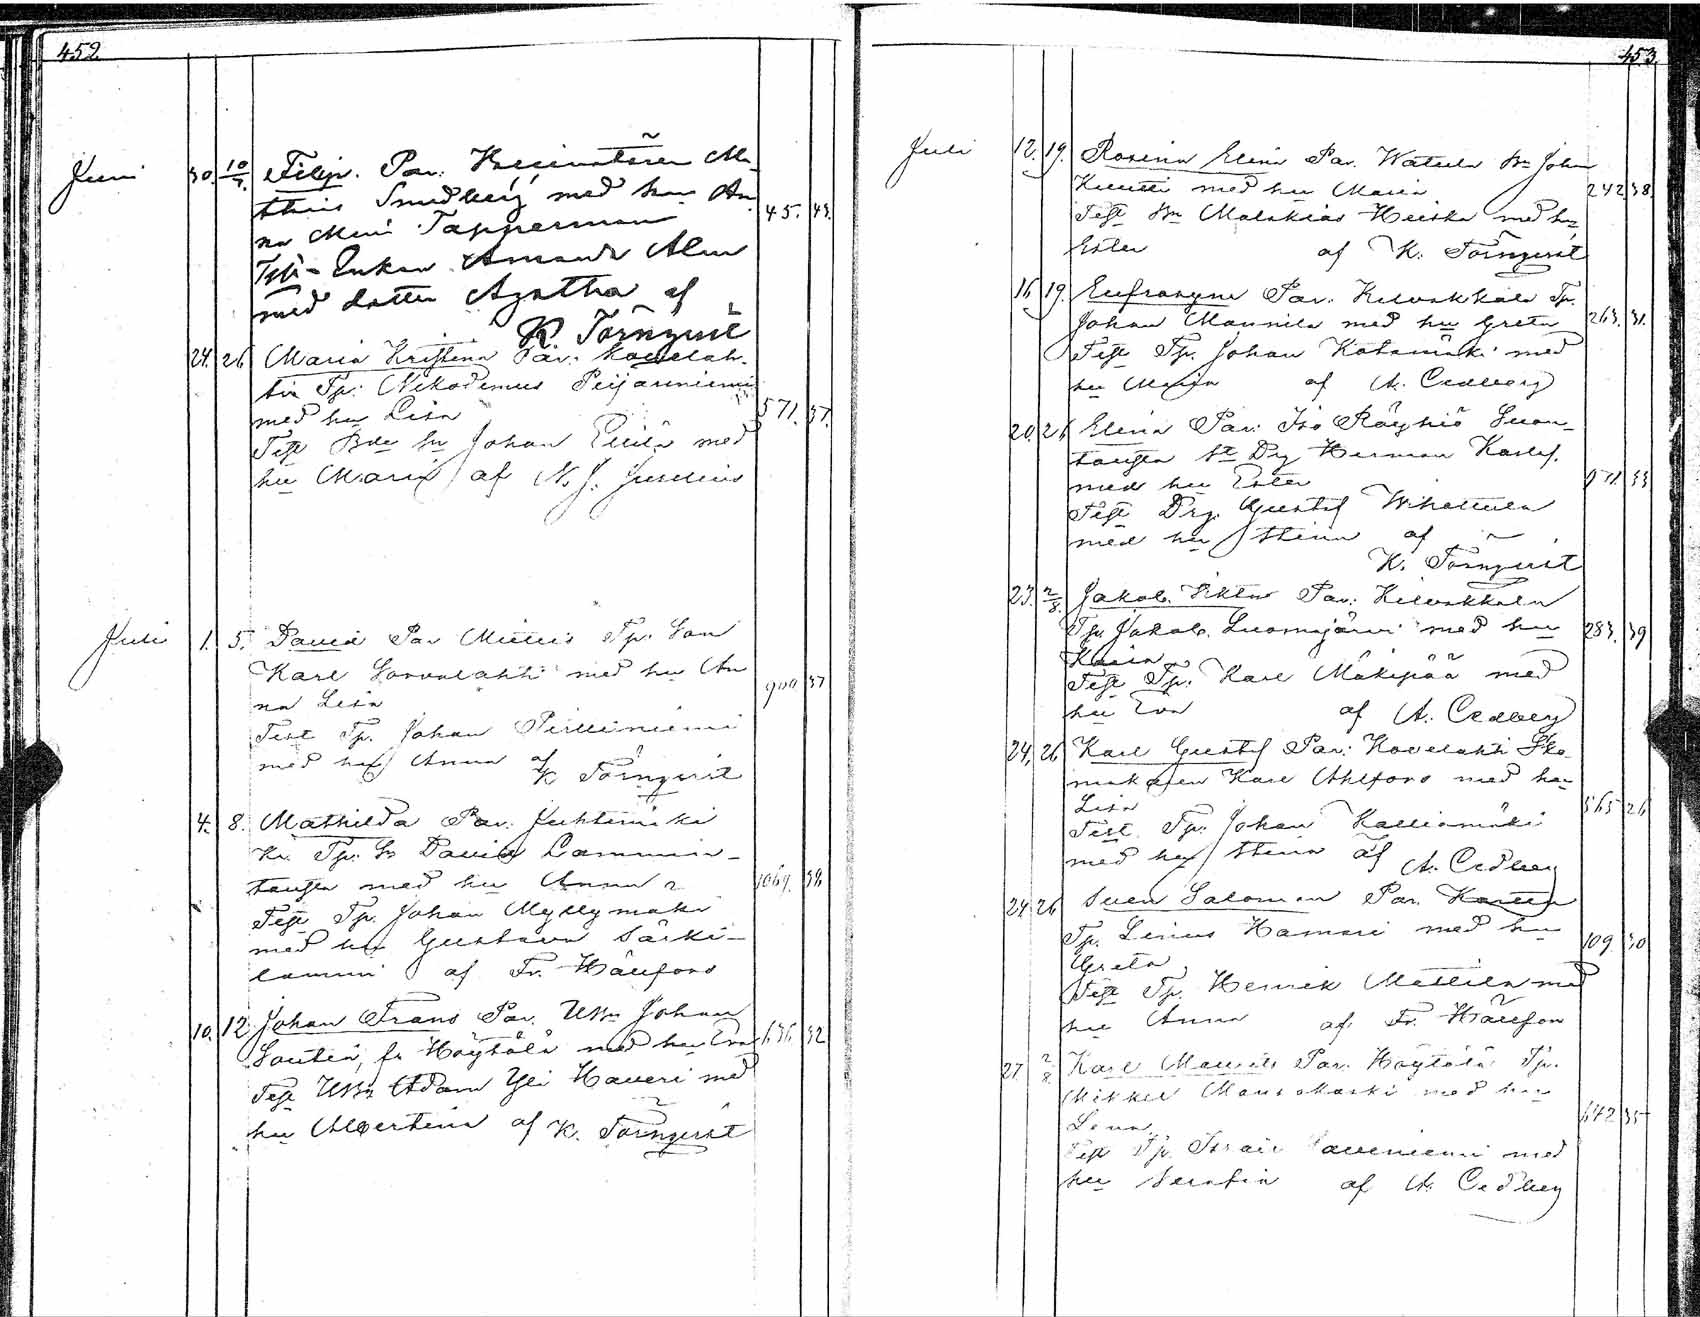 452
Juni 30. 10/7. Filip. Par.
Smedberg med hu An
na Tapperman 45. 43.
Enkan Amanda Alm
med dotter Agatha af
K. Törnqvist
24. 26 Maria Kristina Par. Kovelah-
ti Tp. Nikodemus
med hu Lisa 571. 37.
Test Johan med
hu Maria af N. J. Juselius
Juli 1. 5. David Par Tp. Son
Karl med hu An
na Lisa 900 37
Test Tp. Johan
med hu Anna af
K Törnqvist
4. 8. Mathilda Par. Juhtimäki
Tp. David Lammin-
tausta med hu Anna 1069. 38
Test Tp. Johan Myllymäki
med hu Gustava Särki-
lammi af Fr. Håufors
10. 12 Johan Frans Par. Johan
fr Höytölä med hu Eva 636 32
Test Adam Yli Haveri med
hu Albertina af K. Törnqvist
453.
Juli 12. 19. Rosina Elina Par. Watula Bn Johan
med hu Maria 242 38.
Test Bn Malakias Heiska med hu
Ester af K. Törnqvist
16 19. Eufrosyne Par. Kilvakkala Tp.
Johan Mannila med hu Greta 263. 31.
Test Tp. Johan Katamäki med
hu Maria af A. Cedberg
20. 26 Elina Par. Iso Röyhiö Suon-
tausta Drg Herman Karlsf.
med hu Ester 971 33
Test Drg. Gustaf Wihattula
med hu Stina af
K. Törnqvist
23. 2/8. Jakob Viktor Par. Kilvakkala
Tp. Jakob Luomajärvi med hu 283. 39
Karin
Test Tp. Karl Mäkipää med
hu Eva af A. Cedberg
24. 26 Karl Gustaf Par. Kovelahti Sko
makaren Karl Ahlfors med hu
Lisa 565 26
Test. Tp. Johan Kalliomäki
med hu Stina af A. Cedberg
24 26 Sven Salomon Par.
Tp. Linus Hamari med hu
Greta 109 30
Test Tp. Henrik Mattila med
hu Anna af Fr. Håufors
27 2/8 Karl Mauritz Par. Höytölä Tp.
Mikkel med hu
Lena 642 35
Test Tp. med
hu Serafia af A. Cedberg